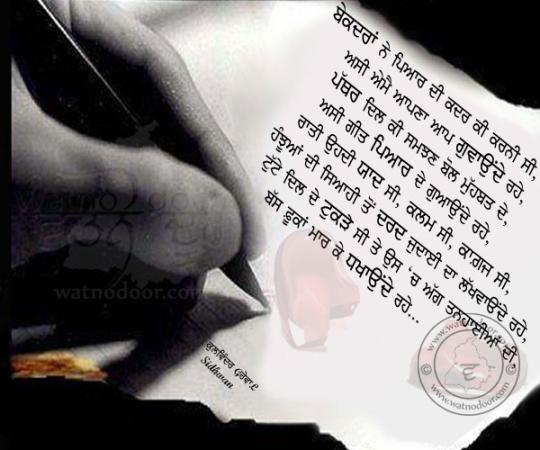 ਬੇਕਦਰਾਂ ਨੇ ਪਿਆਰ ਦੀ ਕਦਰ ਕੀ ਕਰਨੀ ਸੀ,
ਅਸੀ ਐਮੇ ਆਪਣਾ ਆਪ ਗੁਵਾਉਂਦੇ ਰਹੇ,
ਪੱਥਰ ਦਿਲ ਕੀ ਸਮਝਣ ਬੋਲ ਮੁੱਹਬਤ ਦੇ,
ਅਸੀ ਗੀਤ ਪਿਆਰ ਦੇ ਗੁਆਉਂਦੇ ਰਹੇ,
ਰਾਤੀ ਉਹਦੀ ਯਾਦ ਸੀ, ਕਲਮ ਸੀ, ਕਾਗਜ ਸੀ,
ਹੰਝੂਆਂ ਦੀ ਸਿਆਹੀ ਤੋਂ ਦਰਦ ਜੁਦਾਈ ਦਾ ਲੱਖਵਾਉਂਦੇ ਰਹੇ,
ਟੁੱਟੇ ਦਿਲ ਦੇ ਟੁਕੜੇ ਸੀ ਤੇ ਉਸ 'ਚ ਅੱਗ ਤਨਹਾਈਆਂ ਦੀ,
ਬੱਸ ਫੂਕਾਂ ਮਾਰ ਕੇ ਧਖਾਉਂਦੇ ਰਹੇ...
ਕੁਲਵਿੰਦਰ
Sidhwan
watnodoor.com
www.watnodoor.com